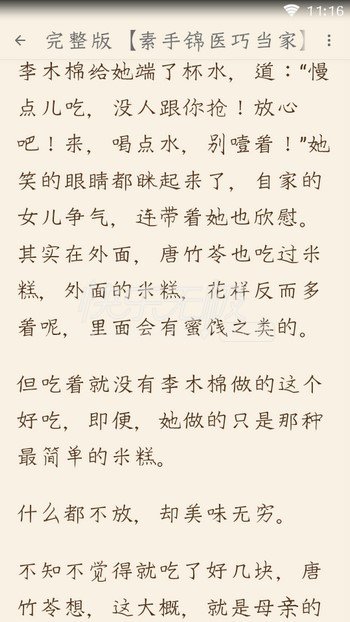 11:16
完整版【素手锦医巧当家】
李木棉给她端了杯水，道：“慢
点儿吃，没人跟你抢！放心
吧！来，喝点水，别噎着！”她
笑的眼睛都眯起来了，自家的
女儿争气，连带着她也欣慰。
其实在外面，唐竹苓也吃过米
糕，外面的米糕，花样反而多
着呢，里面会有蜜饯之类的。
但吃着就没有李木棉做的这个
好吃，即便，她做的只是那种
最简单的米糕。
什么都不放，却美味无穷。
不知不觉得就吃了好几块，唐
竹苓想，这大概，就是母亲的